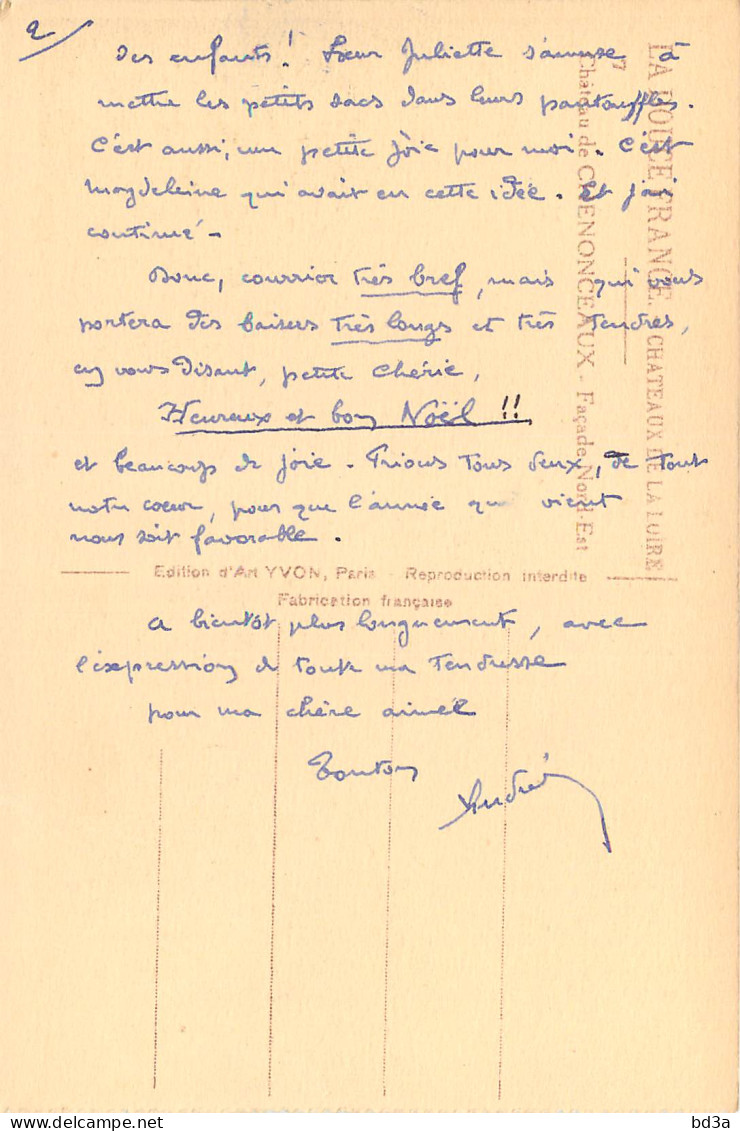 2
des enfants ! Sœur Juliette s'amuse à
mettre les petits sacs dans leurs pantouffles.
C'est aussi, une petite joie pour moi. C'est
Magdeleine qui avait eu cette idée. Et j'ai
continué -
Donc, courrier très bref, mais qui vous
portera des baisers très longs et très tendres,
en vous disant, petite chérie,
Heureux et bon Noël !!
et beaucoup de joie. Prions tous deux, de tout
notre coeur, pour que l'année qui vient
nous soit favorable.
A bientôt plus longuement, avec
l'expression de toute ma tendresse
pour ma chère aimée
Tonton
André
LA DOUCE FRANCE. - CHATEAUX DE LA LOIRE
7
Château de CHENONCEAUX - Façade Nord-Est
Edition d'Art YVON, Paris - Reproduction interdite
Fabrication française
bd3a